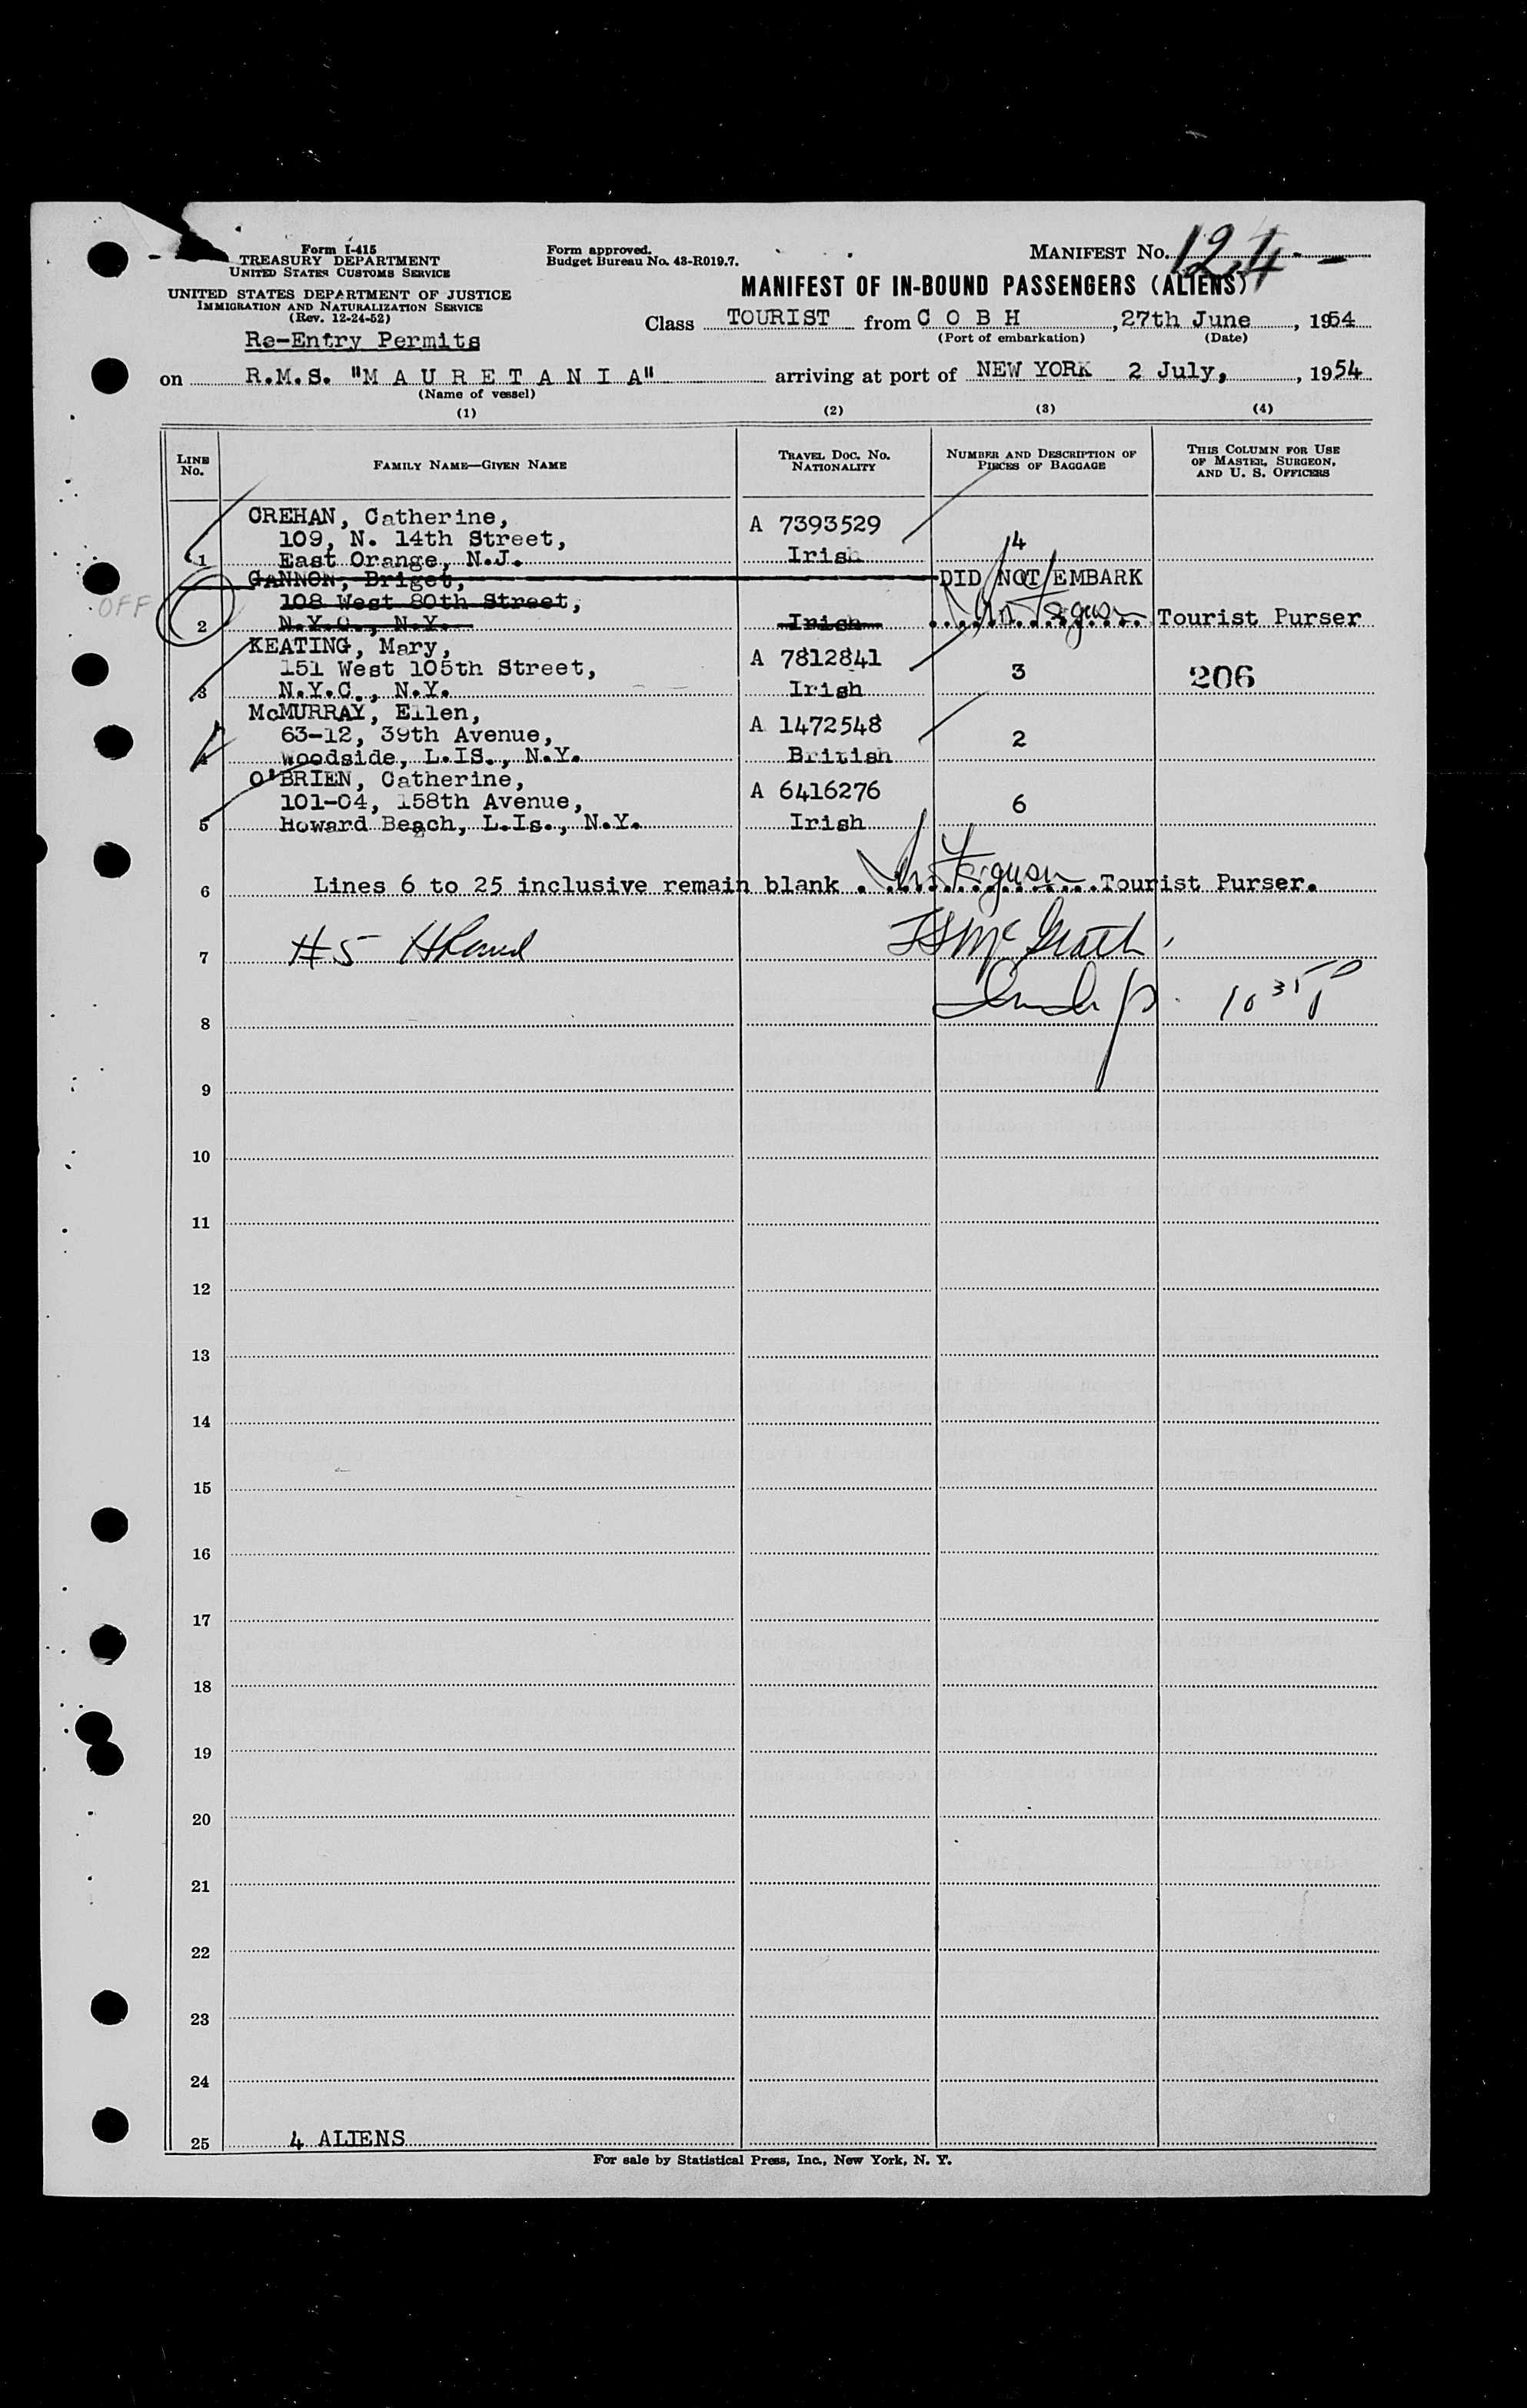 Form I-415
TREASURY DEPARTMENT
UNITED STATES CUSTOMS SERVICE
UNITED STATES DEPARTMENT OF JUSTICE
IMMIGRATION AND NATURALIZATION SERVICE
(Rev. 12-24-52)
Re-Entry Permits
Form approved.
Budget Bureau No. 43-R019.7.
MANIFEST No. 124
MANIFEST OF IN-BOUND PASSENGERS (ALIENS)
Class TOURIST from C O B H, 27th June, 1954
(Port of embarkation) (Date)
on R.M.S. "M A U R E T A N I A" arriving at port of NEW YORK 2 July, 1954
(Name of vessel)
(1) (2) (3) (4)
LINE No. FAMILY NAME—GIVEN NAME TRAVEL DOC. NO. NATIONALITY NUMBER AND DESCRIPTION OF PIECES OF BAGGAGE THIS COLUMN FOR USE OF MASTER, SURGEON, AND U. S. OFFICERS
CREHAN, Catherine, A 7393529
109, N. 14th Street, 4
1 East Orange, N.J. Irish
GANNON, Briget, DID NOT EMBARK
OFF 108 West 80th Street,
2 N.Y.C., N.Y. Irish Ferguson Tourist Purser
KEATING, Mary, A 7812841
151 West 105th Street, 3 206
3 N.Y.C., N.Y. Irish
McMURRAY, Ellen, A 1472548
63-12, 39th Avenue, 2
4 Woodside, L.IS., N.Y. British
O'BRIEN, Catherine, A 6416276
101-04, 158th Avenue, 6
5 Howard Beach, L.Is., N.Y. Irish
6 Lines 6 to 25 inclusive remain blank . Ferguson Tourist Purser.
7 #5 McGrath
8
9
10
11
12
13
14
15
16
17
18
19
20
21
22
23
24
25 4 ALIENS
For sale by Statistical Press, Inc., New York, N. Y.